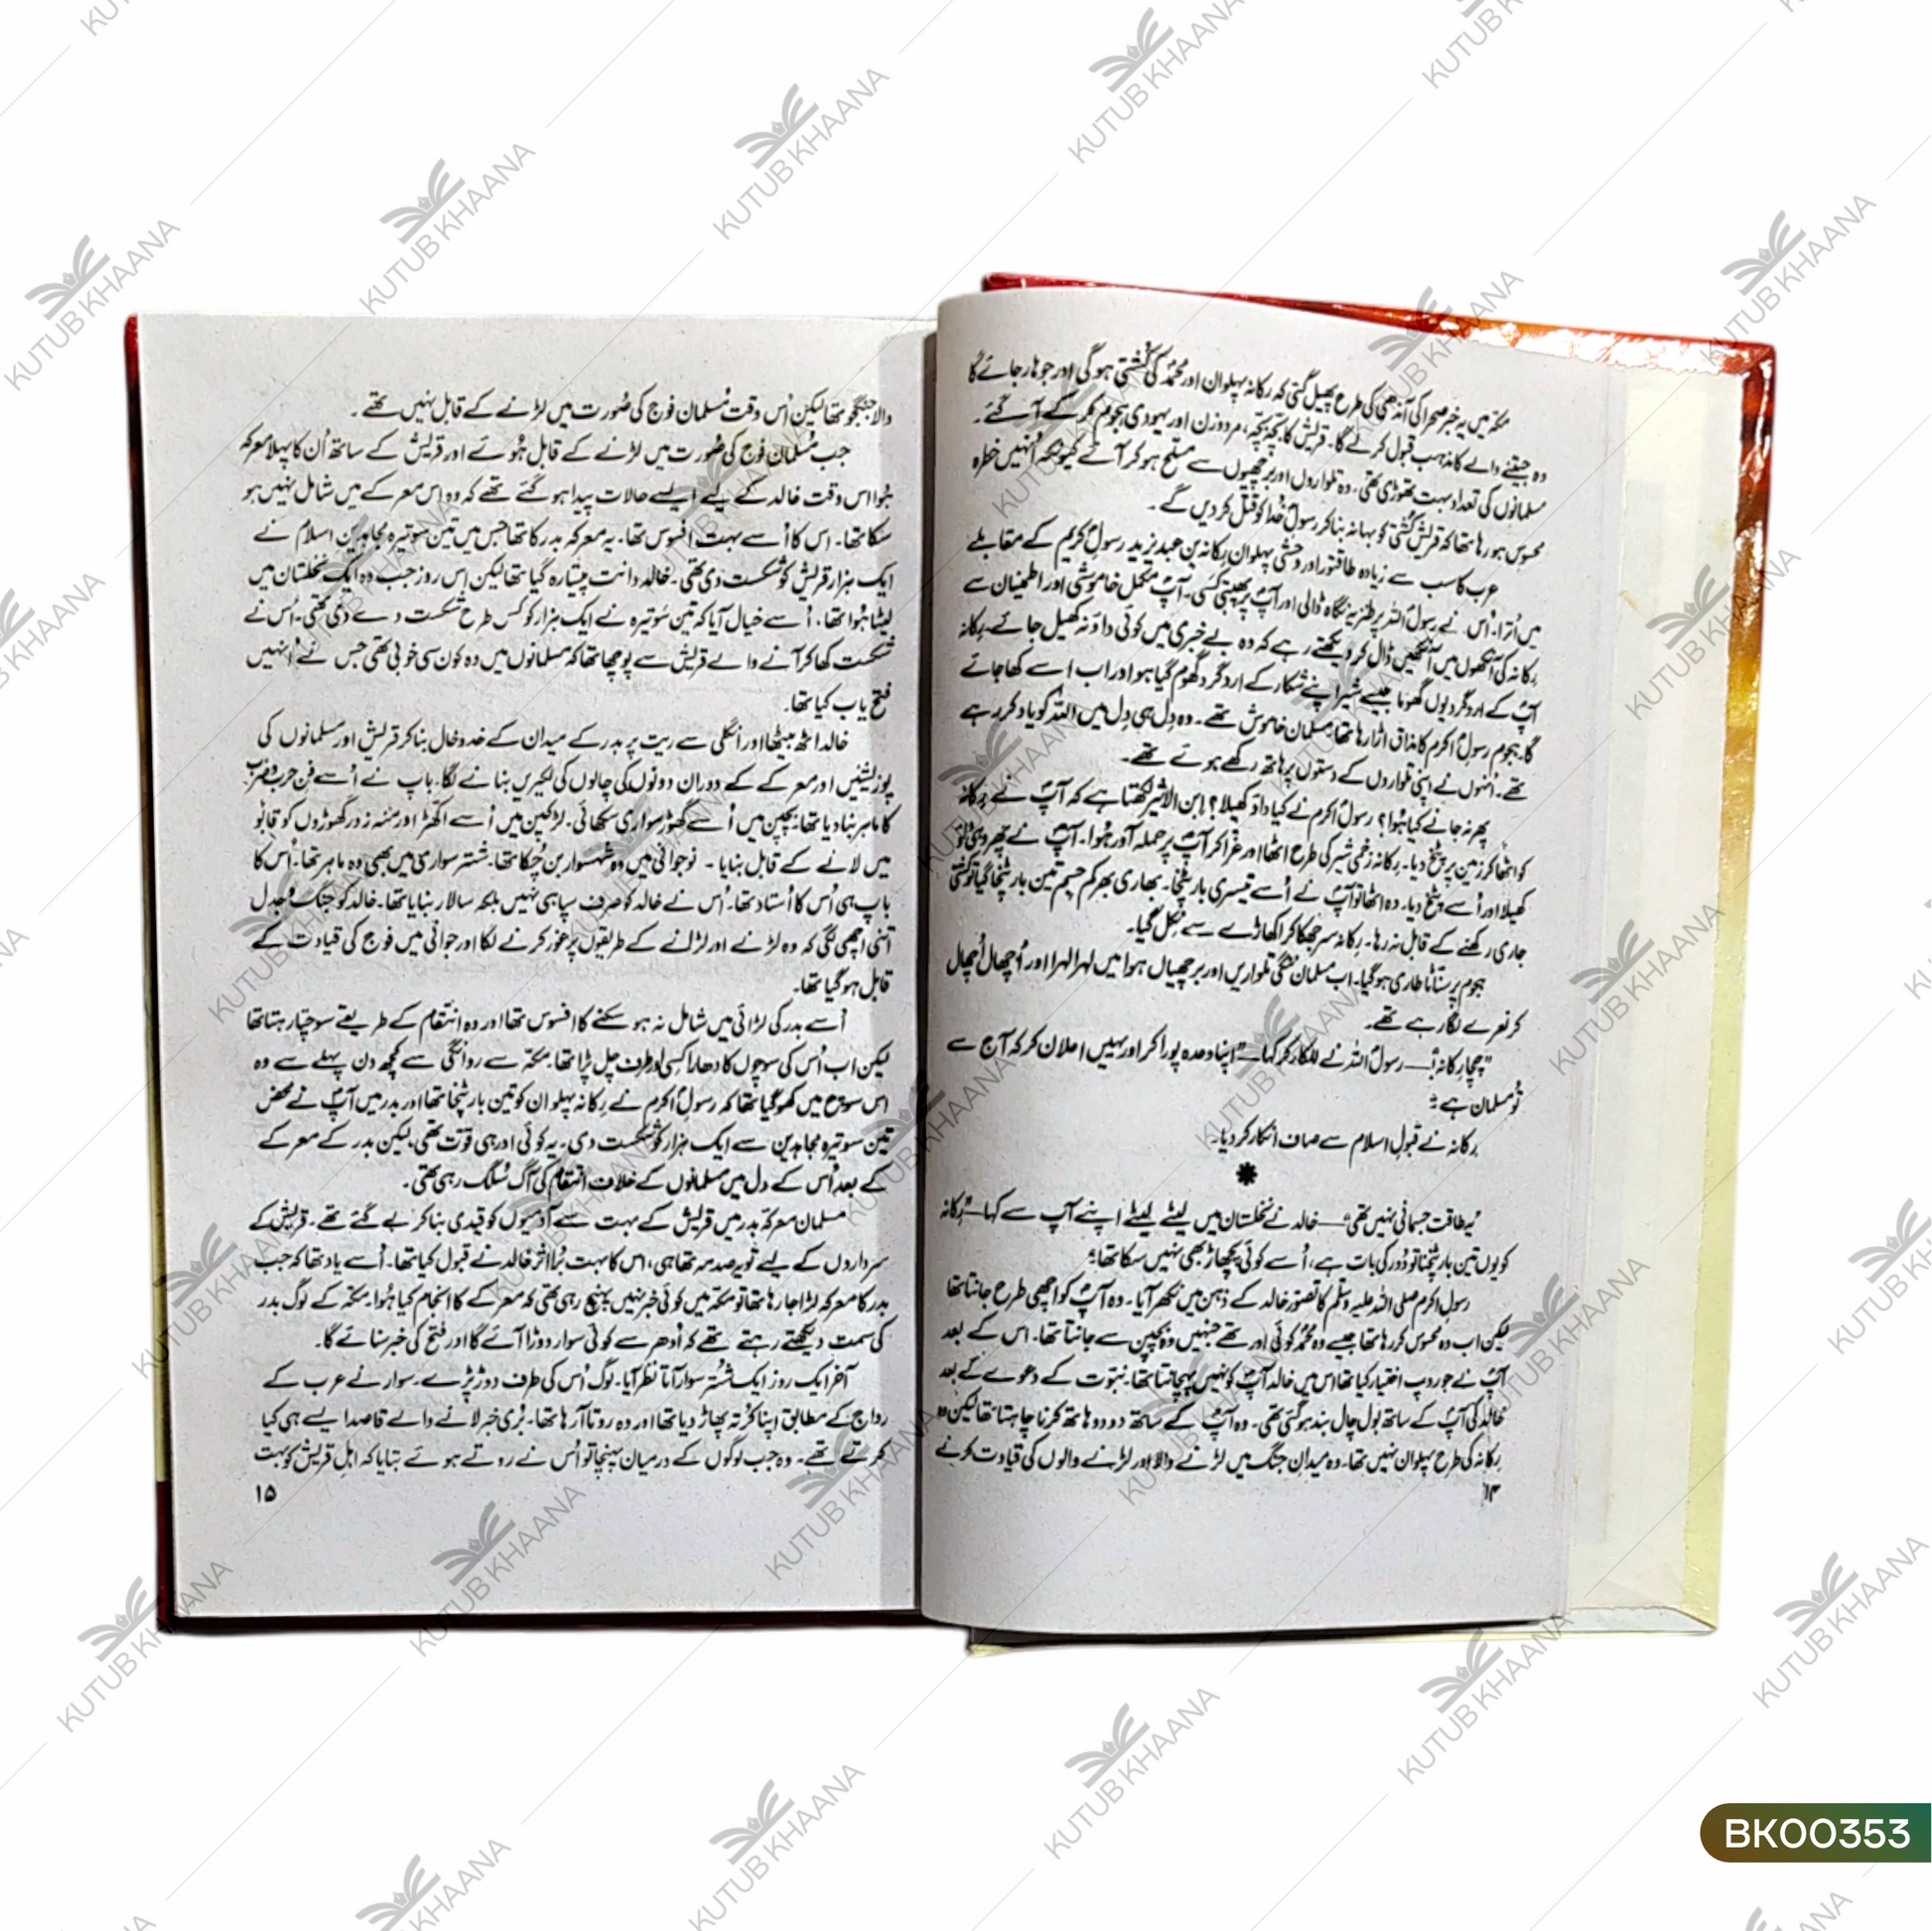 مکّہ میں یہ خبر صحرا کی آندھی کی طرح پھیل گئی کہ رکانہ پہلوان اور محمدؐ کی کُشتی ہو گی اور جو ہار جائے گا
وہ جیتنے والے کا مذہب قبول کرلے گا۔ قریش کا بچّہ بچّہ، مرد و زن اور یہودی ہجوم کر کے آ گئے۔
مسلمانوں کی تعداد بہت تھوڑی تھی۔ وہ تلواروں اور برچھیوں سے مسلّح ہو کر آئے کیونکہ اُنہیں خطرہ
محسوس ہو رہا تھا کہ قریش کُشتی کو بہانہ بنا کر رسولؐ خُدا کو قتل کر دیں گے۔
عرب کا سب سے زیادہ طاقتور اور وحشی پہلوان رِکانہ بن عبد یزید رسولؐ کریم کے مقابلے
میں اُترا۔ اُس نے رسولؐ اللہ پر طنزیہ نگاہ ڈالی اور آپؐ پر پھبتی کسی۔ آپؐ مکمل خاموشی اور اطمینان سے
رِکانہ کی آنکھوں میں آنکھیں ڈال کر دیکھتے رہے کہ وہ بے خبری میں کوئی داؤ نہ کھیل جائے۔ رِکانہ
آپؐ کے اردگرد یوں گھوما جیسے شیر اپنے شکار کے اردگرد گھوم گیا ہو اور اب اسے کھا جائے
گا۔ ہجوم رسولؐ اکرم کا مذاق اُڑا رہا تھا۔ مسلمان خاموش تھے۔ وہ دِل ہی دِل میں اللہ کو یاد کر رہے
تھے۔ اُنہوں نے اپنی تلواروں کے دستوں پر ہاتھ رکھے ہوئے تھے۔
پھر نہ جانے کیا ہُوا؟ رسولؐ اکرم نے کیا داؤ کھیلا؟ اِبن الاثیر لکھتا ہے کہ آپؐ نے رِکانہ
کو اٹھا کر زمین پر پٹخ دیا۔ رِکانہ زخمی شیر کی طرح اٹھا اور غرّا کر آپؐ پر حملہ آور ہُوا۔ آپؐ نے پھر وہی داؤ
کھیلا اور اُسے پٹخ دیا۔ وہ اٹھا تو آپؐ نے اُسے تیسری بار پٹخا۔ بھاری بھرکم جسم تین بار پٹخا گیا تو کُشتی
جاری رکھنے کے قابل نہ رہا۔ رِکانہ سر جھکا کر اکھاڑے سے نکل گیا۔
ہجوم پر سنّاٹا طاری ہو گیا۔ اب مسلمان ننگی تلواریں اور برچھیاں ہوا میں لہرا لہرا اور اُچھال اُچھال
کر نعرے لگا رہے تھے۔
"چچا رِکانہ!" — رسولؐ اللہ نے للکار کر کہا — "اپنا وعدہ پورا کر اور یہیں اعلان کر کہ آج سے
تُو مسلمان ہے"۔
رِکانہ نے قبولِ اسلام سے صاف انکار کر دیا۔
✱
"یہ طاقت جسمانی نہیں تھی" — خالد نے نخلستان میں لیٹے لیٹے اپنے آپ سے کہا — "رِکانہ
کو یوں تین بار پٹخنا تو دُور کی بات ہے، اُسے کوئی پچھاڑ بھی نہیں سکا تھا"۔
رسولِ اکرم صلی اللہ علیہ وسلّم کا تصوّر خالد کے ذہن میں نکھر آیا۔ وہ آپؐ کو اچھی طرح جانتا تھا
لیکن اب وہ محسوس کر رہا تھا جیسے وہ محمدؐ کوئی اور تھے جنہیں وہ بچپن سے جانتا تھا۔ اس کے بعد
آپؐ نے جو روپ اختیار کیا تھا اس میں خالد آپؐ کو نہیں پہچانتا تھا۔ نبوّت کے دعوے کے بعد
خالد کی آپؐ کے ساتھ بول چال بند ہو گئی تھی۔ وہ آپؐ کے ساتھ دو دو ہاتھ کرنا چاہتا تھا لیکن وہ
رِکانہ کی طرح پہلوان نہیں تھا۔ وہ میدانِ جنگ میں لڑنے والا اور لڑنے والوں کی قیادت کرنے
۱۴
والا جنگجو تھا لیکن اُس وقت مُسلمان فوج کی صُورت میں لڑنے کے قابل نہیں تھے۔
جب مُسلمان فوج کی صُورت میں لڑنے کے قابل ہُوئے اور قریش کے ساتھ اُن کا پہلا معرکہ
ہُوا اس وقت خالد کے لیے ایسے حالات پیدا ہو گئے تھے کہ وہ اِس معرکے میں شامل نہیں ہو
سکا تھا۔ اس کا اُسے بہت افسوس تھا۔ یہ معرکہ بدر کا تھا جس میں تین سو تیرہ مجاہدینِ اسلام نے
ایک ہزار قریش کو شکست دی تھی۔ خالد دانت پیستا رہ گیا تھا لیکن اس روز جب وہ ایک نخلستان میں
لیٹا ہُوا تھا، اُسے خیال آیا کہ تین سَو تیرہ نے ایک ہزار کو کس طرح شکست دے دی تھی۔ اُس نے
شکست کھا کر آنے والے قریش سے پوچھا تھا کہ مسلمانوں میں وہ کون سی خوبی تھی جس نے اُنہیں
فتح یاب کیا تھا۔
خالد اٹھ بیٹھا اور انگلی سے ریت پر بدر کے میدان کے خد و خال بنا کر قریش اور مسلمانوں کی
پوزیشنیں اور معرکے کے دوران دونوں کی چالوں کی لکیریں بنانے لگا۔ باپ نے اُسے فنِ حرب و ضرب
کا ماہر بنا دیا تھا۔ بچپن میں اُسے گھوڑ سواری سکھائی۔ لڑکپن میں اُسے اکھڑ اور منہ زور گھوڑوں کو قابو
میں لانے کے قابل بنایا۔ نوجوانی میں وہ شہسوار بن چُکا تھا۔ شتر سواری میں بھی وہ ماہر تھا۔ اُس کا
باپ ہی اُس کا اُستاد تھا۔ اُس نے خالد کو صرف سپاہی نہیں بلکہ سالار بنایا تھا۔ خالد کو جنگ و جدل
اتنی اچھی لگی کہ وہ لڑنے اور لڑانے کے طریقوں پر غور کرنے لگا اور جوانی میں فوج کی قیادت کے
قابل ہو گیا تھا۔
اُسے بدر کی لڑائی میں شامل نہ ہو سکنے کا افسوس تھا اور وہ انتقام کے طریقے سوچتا رہتا تھا
لیکن اب اُس کی سوچوں کا دھارا کسی اور طرف چل پڑا تھا۔ مکّہ سے روانگی سے کچھ دن پہلے سے وہ
اس سوچ میں کھو گیا تھا کہ رسولؐ اکرم نے رِکانہ پہلوان کو تین بار پٹخا تھا اور بدر میں آپؐ نے محض
تین سو تیرہ مجاہدین سے ایک ہزار کو شکست دی۔ یہ کوئی اور ہی قوّت تھی، لیکن بدر کے معرکے
کے بعد اُس کے دل میں مسلمانوں کے خلاف انتقام کی آگ سُلگ رہی تھی۔
مسلمان معرکۂ بدر میں قریش کے بہت سے آدمیوں کو قیدی بنا کر لے گئے تھے۔ قریش کے
سرداروں کے لیے تو یہ صدمہ تھا ہی، اس کا بہت بُرا اثر خالد نے قبول کیا تھا۔ اُسے یاد تھا کہ جب
بدر کا معرکہ لڑا جا رہا تھا تو مکّہ میں کوئی خبر نہیں پہنچ رہی تھی کہ معرکے کا انجام کیا ہُوا۔ مکّہ کے لوگ بدر
کی سمت دیکھتے رہتے تھے کہ اُدھر سے کوئی سوار دوڑا آئے گا اور فتح کی خبر سنائے گا۔
آخر ایک روز ایک شُتر سوار آتا نظر آیا۔ لوگ اُس کی طرف دوڑ پڑے۔ سوار نے عرب کے
رواج کے مطابق اپنا کُرتہ پھاڑ دیا تھا اور وہ روتا آ رہا تھا۔ بُری خبر لانے والے قاصد ایسے ہی کیا
کرتے تھے۔ وہ جب لوگوں کے درمیان پہنچا تو اُس نے روتے ہوئے بتایا کہ اہلِ قریش کو بہت
۱۵
KUTUB KHAANA
BK00353